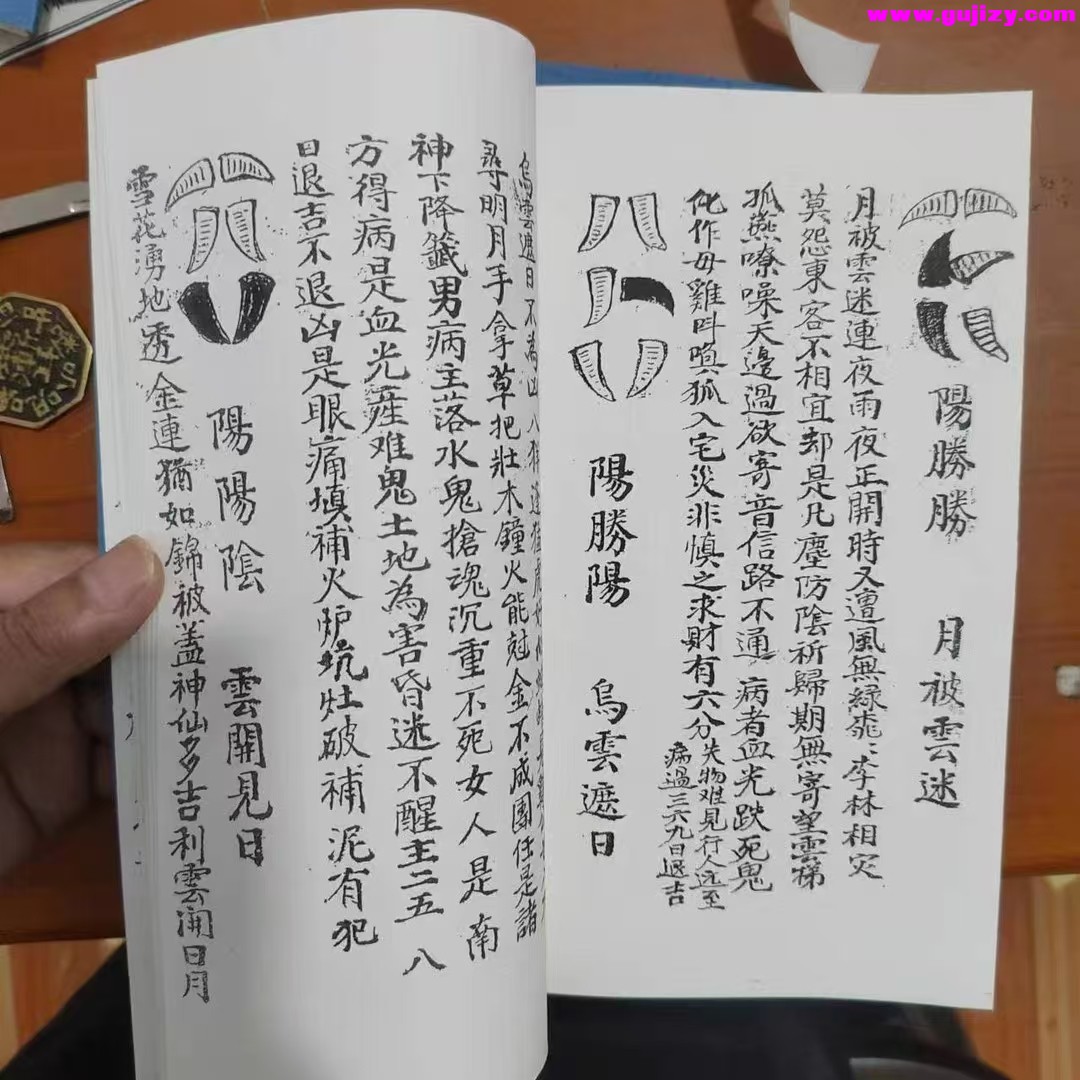 www.gujizy.com
陽勝勝 月被雲迷
月被雲迷連夜雨夜正開時又遭風無緑桃、李林相灾
莫怨東客不相宜却是凡塵防陰祈歸期無寄望雲梯
孤燕嘹噪天邊過欲寄音信路不通病者血光跌死鬼
化作母雞叫嗔狐入宅災非慎之求財有六分失物难見行人近至
病過三六九日退吉
陽勝陽 烏雲遮日
烏雲遮日不為凶
尋明月手拿草把壯木鐘火能尅金不成團任是諸
神下降籤男病主落水鬼搶魂沉重不死女人是南
方得病是血光產难鬼土地為害昏迷不醒主二五八
日退吉不退凶是眼痛填補火炉坑灶破補泥有犯
陽陽陰 雲開見日
雪花湧地透金連猶如錦被盖神仙多吉利雲開日月